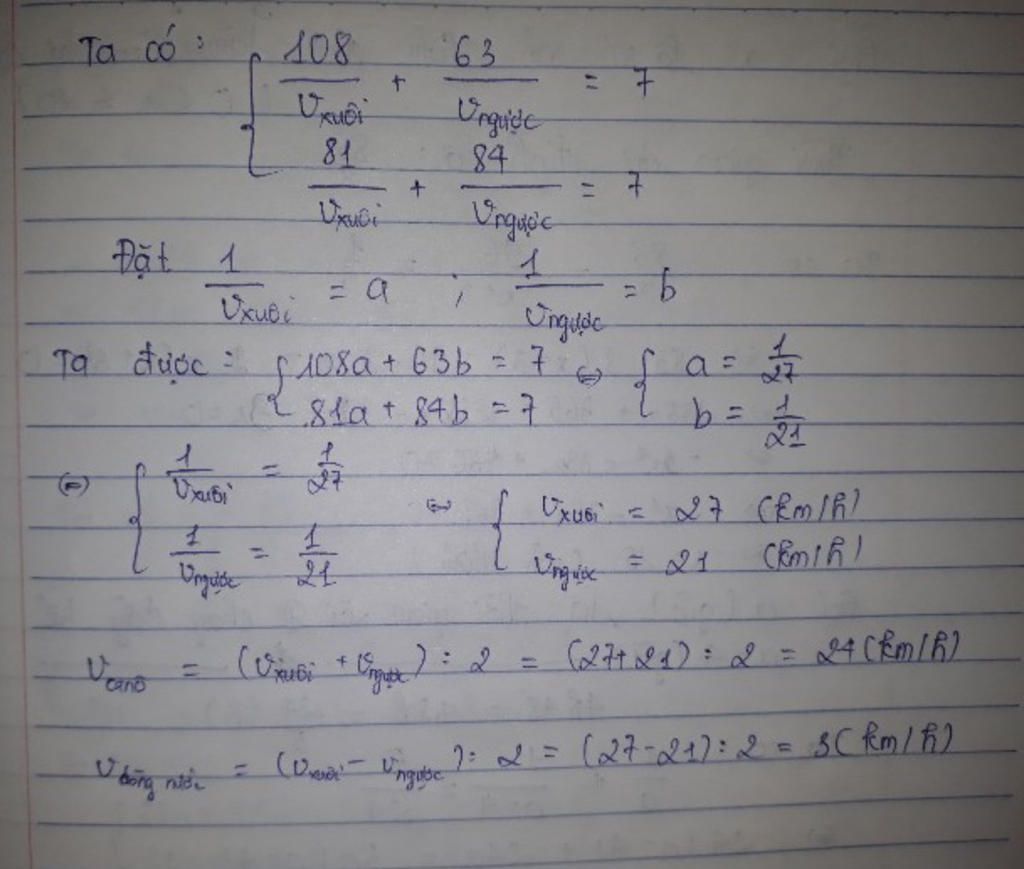 Ta có : { 108/Vxuôi + 63/Vngược = 7
81/Vxuôi + 84/Vngược = 7
Đặt 1/Vxuôi = a ; 1/Vngược = b
Ta được : { 108a + 63b = 7 (=) { a = 1/27
81a + 84b = 7 b = 1/21
(=) { 1/Vxuôi = 1/27 (=) { Vxuôi = 27 (km/h)
1/Vngược = 1/21 Vngược = 21 (km/h)
Vcanô = (Vxuôi + Vngược) : 2 = (27+21) : 2 = 24 (km/h)
Vdòng nước = (Vxuôi - Vngược) : 2 = (27-21) : 2 = 3 (km/h)